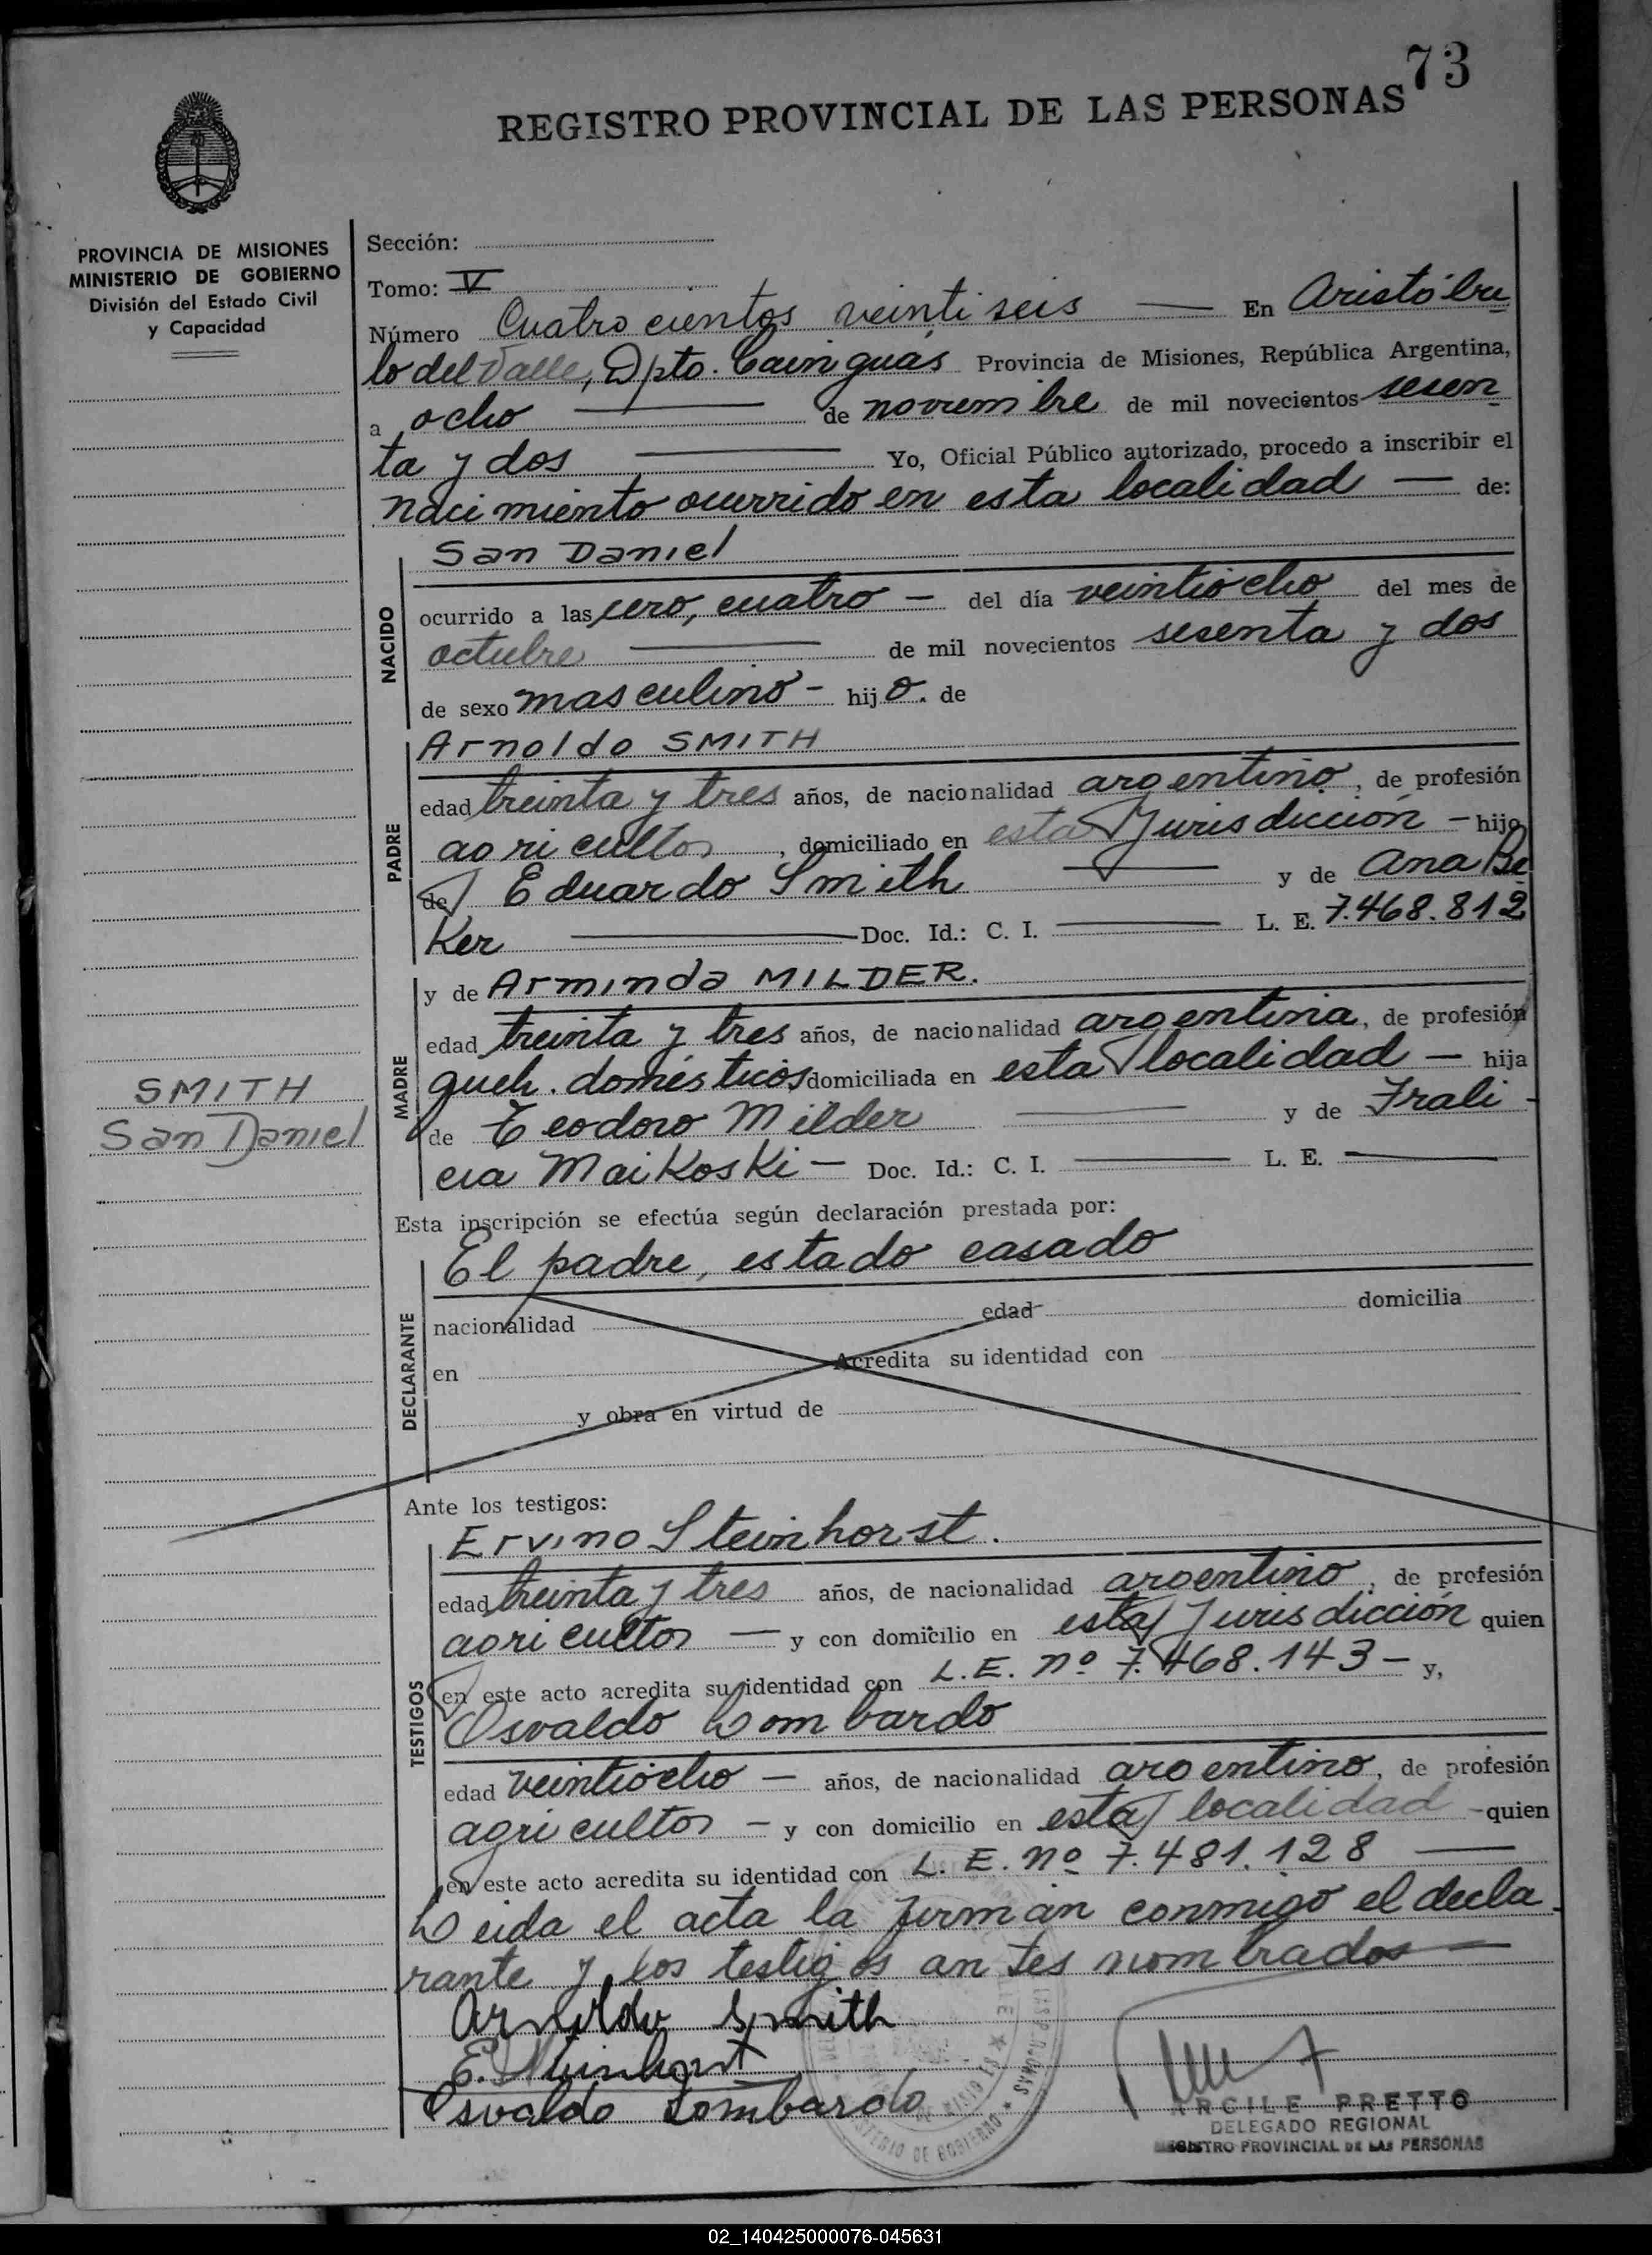 73
REGISTRO PROVINCIAL DE LAS PERSONAS
PROVINCIA DE MISIONES
MINISTERIO DE GOBIERNO
División del Estado Civil
y Capacidad
Sección:
Tomo: V
Número Cuatrocientos veintiseis — En Aristóbu
lo del Valle, Dpto. Cainguás Provincia de Misiones, República Argentina,
a ocho — de noviembre de mil novecientos sesen
ta y dos — Yo, Oficial Público autorizado, procedo a inscribir el
nacimiento ocurrido en esta localidad — de:
NACIDO
San Daniel
ocurrido a las cero, cuatro — del día veintiocho del mes de
octubre — de mil novecientos sesenta y dos
de sexo masculino - hijo. de
PADRE
Arnoldo SMITH
edad treinta y tres años, de nacionalidad argentino, de profesión
agricultor, domiciliado en esta Jurisdicción - hijo
de Eduardo Smith — y de Ana Be
Ker — Doc. Id.: C. I. — L. E. 7.468.812
MADRE
y de Arminda MILDER.
edad treinta y tres años, de nacionalidad argentina, de profesión
queh. domésticos domiciliada en esta localidad — hija
de Teodoro Milder — y de Frali
cia MaiKosKi — Doc. Id.: C. I. — L. E. —
SMITH
San Daniel
Esta inscripción se efectúa según declaración prestada por:
DECLARANTE
El padre, estado casado
nacionalidad edad domicilia
en Acredita su identidad con
y obra en virtud de
Ante los testigos:
TESTIGOS
Ervino Steinhorst.
edad treinta y tres años, de nacionalidad argentino, de profesión
agricultor — y con domicilio en esta Jurisdicción quien
en este acto acredita su identidad con L.E. nº 7.468.143 - y,
Osvaldo Lombardo
edad veintiocho — años, de nacionalidad argentino, de profesión
agricultor - y con domicilio en esta localidad - quien
en este acto acredita su identidad con L. E. nº 7.481.128 —
Leida el acta la firman conmigo el decla
rante y los testigos antes nombrados —
Arnoldo Smith
E. Steinhorst
Osvaldo Lombardo
ARGILE PRETTO
DELEGADO REGIONAL
REGISTRO PROVINCIAL DE LAS PERSONAS
02_140425000076-045631